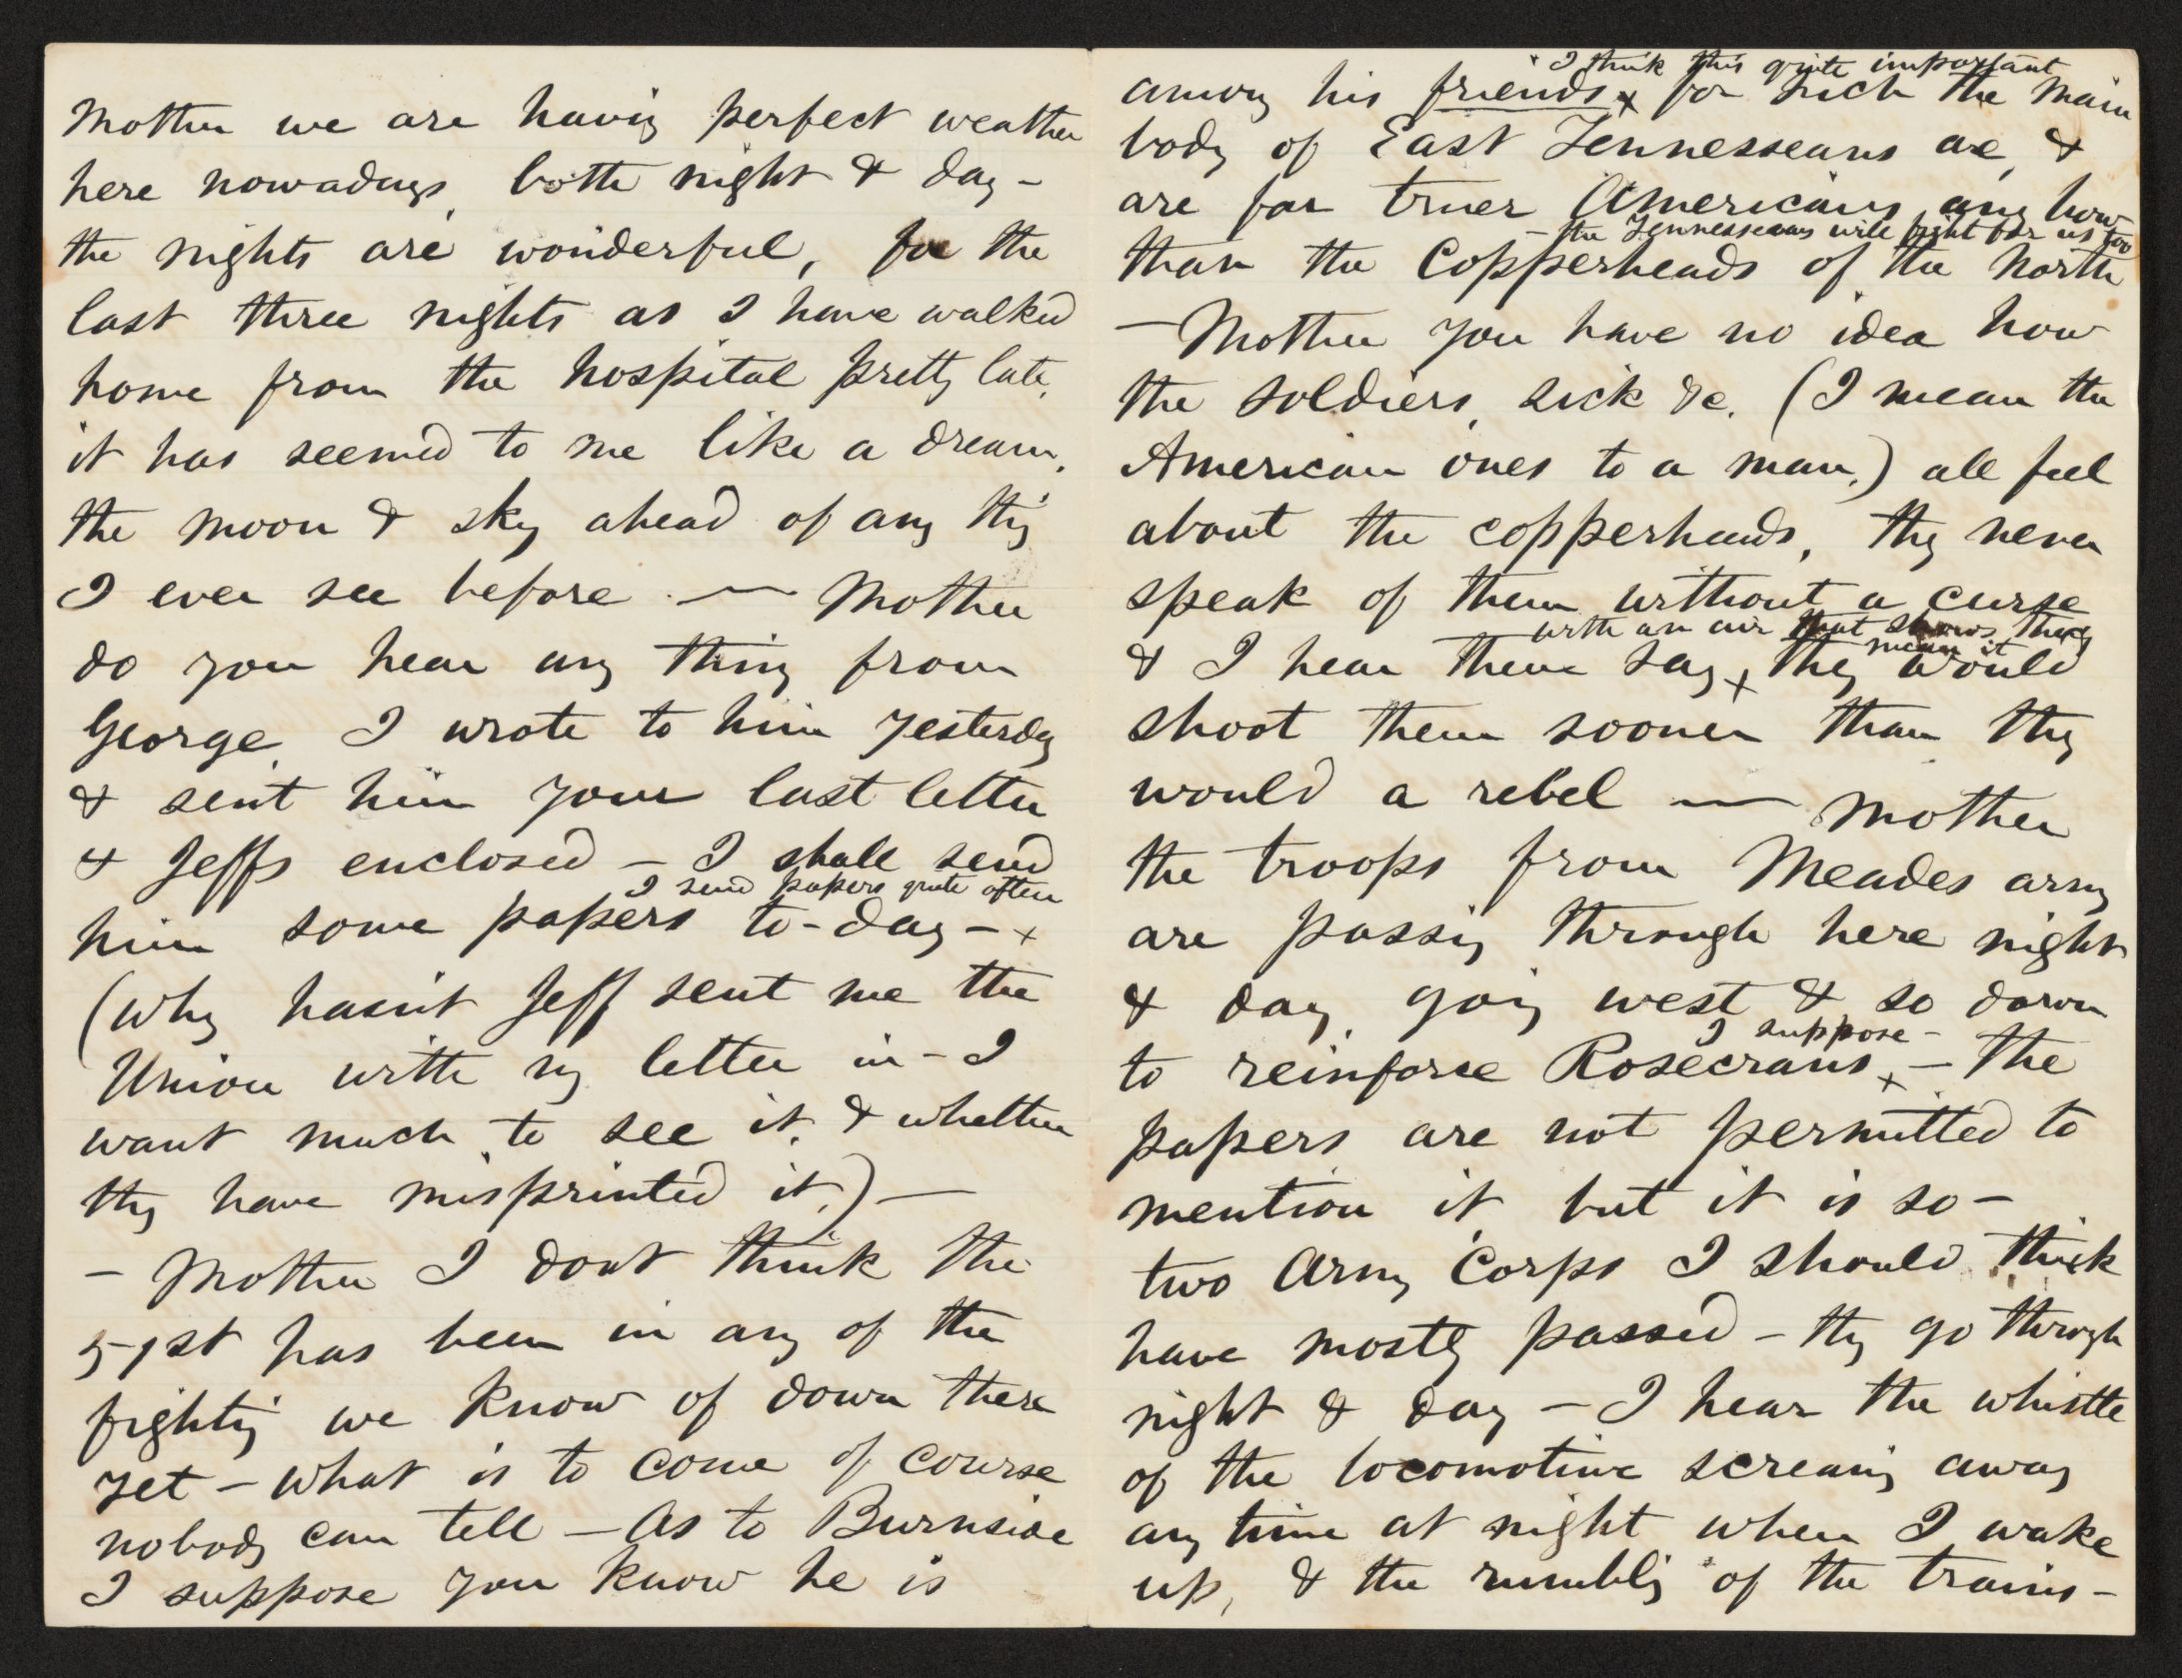 Mother we are having perfect weather
here nowadays, both night & day –
the nights are wonderful, for the
last three nights as I have walked
home from the hospital pretty late,
it has seemed to me like a dream,
the moon & sky ahead of any thing
I ever see before — Mother
do you hear any thing from
George, I wrote to him yesterday
& sent him your last letter
& Jeffs enclosed – I shall send
I send papers quite often
him some papers to-day – x
(why hasn't Jeff sent me the
Union with my letter in – I
want much to see it, & whether
they have misprinted it.) —
– Mother I dont think the
51st has been in any of the
fighting we know of down there
yet – what is to come of course
nobody can tell – As to Burnside
I suppose you know he is
I think this quite important
among his friends x for such the main
body of East Tennesseans are, &
are far truer Americans any how
– the Tennesseans will fight for us too
than the Copperheads of the North
– Mother you have no idea how
the soldiers, sick &c. (I mean the
American ones to a man,) all feel
about the copperheads, they never
speak of them without a curse
with an air that shows they
mean it
& I hear them say, x they would
shoot them sooner than they
would a rebel — Mother
the troops from Meades army
are passing through here night
& day, going west & so down
I suppose –
to reinforce Rosecrans, x – the
papers are not permitted to
mention it, but it is so –
two Army Corps I should think
have mostly passed – they go through
night & day – I hear the whistle
of the locomotive screaming away
any time at night when I wake
up, & the rumbling of the trains –